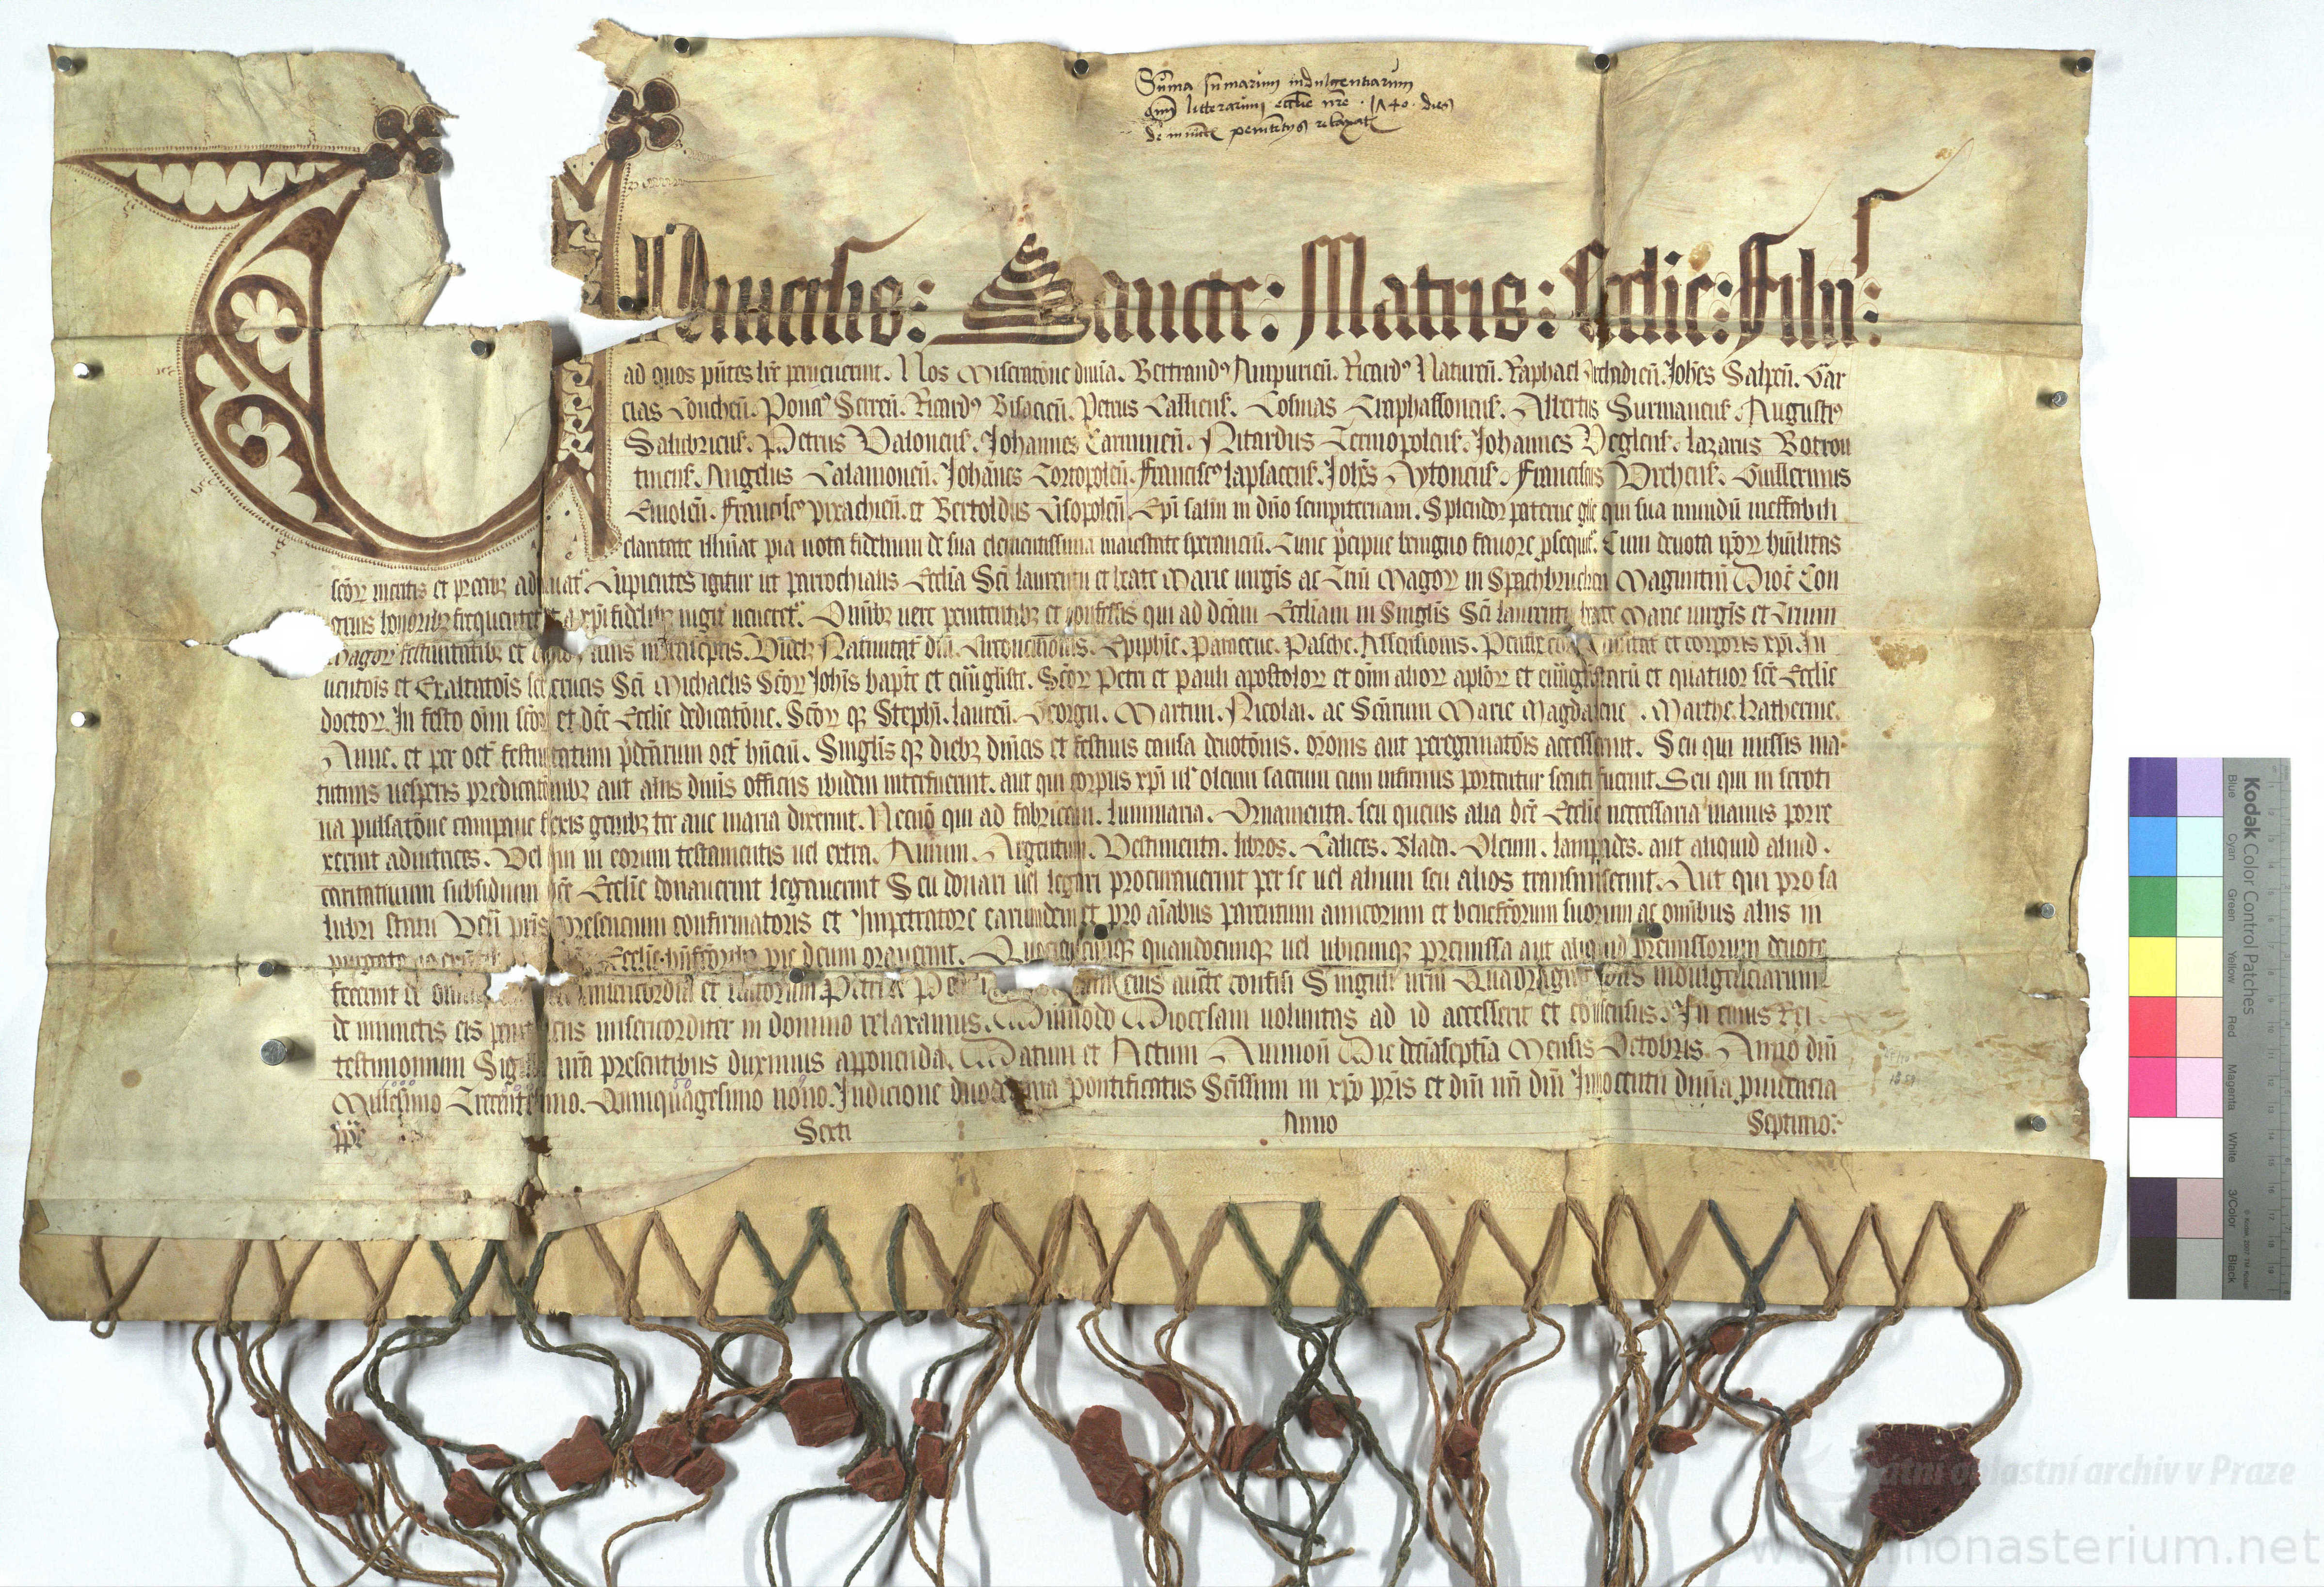 Suma sumarum indulgentiarum
litterarum eccl̄ie nr̄e . 1740 . dies
de iniūctis penitētijs relaxat
Universis: Sancte: Matris: Ecclie: Filijs:
ad quos pn̄tes lr̄e pervenerint. Nos Miseratōne divīa. Bertrandꝰ Ampurien̄. Ricardꝰ Naturen̄. Raphael Archadien̄. Joh̄es Salpen̄. Gar
cias Conchen̄. Poncꝰ Serren̄. Ricardꝰ Bisacien̄. Petrus Calliens̄. Cosmas Trȳphassonens̄. Albertus Surmanens̄. Augustīꝰ
Salubriens̄. Petrus Valonens̄. Johannes Carminen̄. Nitardus Termopolens̄. Johannes Veglens̄. Lazarus Botrou
tinens̄. Angelus Calamonen̄. Johānes Tortopolen̄. Franciscꝰ lapsacens̄. Joh̄es Aytonens̄. Franciscus Vrehens̄. Guillermus
Emolen̄. Franciscꝰ et Bertoldus Cisopolen̄. Ep̄i salm̄ in dn̄o sempiternam. Splendor paterne gl̄ie qui sua mundū ineffabili
claritate illūīat pia vota fidelium de sua clementissima maiestate sperancīū. Tunc p̄cipue benigno favore ꝓsequit̄. Cum devota ip̄oꝝ hūilitas
sc̄oꝝ meritis et precibꝫ adiuvat̄. Cupientes igitur ut parrochialis Eccl̄ia Sc̄i laurentii et beate Marie virgīs ac Triū Magoꝝ in Spachbrucken Maguntin̄ Dioc̄ Con
gruis honoribꝫ frequentet̄ et a xp̄i fidelibꝫ iugit̄ veneret̄. Om̄ibꝫ vere penitentibꝫ et confessis qui ad dc̄am Eccl̄iam in Singl̄is Sc̄i laurentii beate Marie virgīs et Trium
Magoꝝ festivitatibꝫ et Videlꝫ Nativitat̄ dn̄i. Circūcisiōis. Epiphīe. Parasceue. Pasche. Assensionis. Penthecost̄ Trinitat̄ et corporis xp̄i. In
ventōis et Exaltatōis sc̄e crucis Sc̄i Michaelis Sc̄oꝝ Joh̄is bapt̄e et ewāgeliste. Sc̄oꝝ Petri et pauli apostoloꝝ et om̄i alioꝝ apl̄oꝝ et ewāgelistarū et quatuor sc̄e Eccl̄ie
doctoꝝ. In festo om̄i sc̄oꝝ et dc̄e Eccl̄ie dedicatōne. Sc̄oꝝ qꝫ Stephī. lauren̄. Georgii. Martini. Nicolai. ac Sc̄arum Marie Magdalene. Marthe. Katherine.
Anne. et per oct̄ festivitatum p̄dc̄arum oct̄ hn̄ciū. Singl̄is qꝫ diebꝫ dn̄icis et festivis causa devotōnis. or̄onis aut peregrinatōis accesserint. Seu qui missis ma-
tutinis vesperis predicatōnibꝫ aut aliis divīs officiis ibidem interfuerint. aut qui corpus xp̄i vl̄ oleum sacrum cum infirmis portentur secuti fuerint. Seu qui in seroti
na pulsatōne campane flexis genibꝫ ter ave maria dixerint. Necnō qui ad fabricam. luminaria. Ornamenta. seu quevis alia dc̄e Eccl̄ie necessaria manus porre
xerint adiutrices. Vel qui in eorum testamentis vel extra. Aurum. Argentum. Vestimenta. libros. Calices. Blada. Oleum. lampades. aut aliquid aliud.
caritativum subsidium dc̄e Eccl̄ie donaverint legaverint Seu donari vel legari procuraverint per se vel alium seu alios transmiserint. Aut qui pro sa
lubri statu Ven̄ pr̄is presencium confirmatoris et Impetratore earumdem et pro aīabus parentum amicorum et benefc̄orum suorum ac omībus aliis in
Eccl̄ie pie deum oraverint. Quociescūqꝫ quandocunqꝫ vel ubicunqꝫ premissa aut aliquid premissorum devote
fecerint de misericordia et Petri eius auct̄e confisi Singuli nr̄m Quadraginta dies indulgenciarum
de iniunctis eis misericorditer in domino relaxamus. Dūmodo Diocesani voluntas ad id accesserit et consensus. In cuius Rei
testimonium nr̄a presentibus duximus apponenda. Datum et Actum Avinion̄ Die decīaseptīa Mensis Octobris. Anno dn̄i
Millesimo Trecentesimo. Quinquagesimo nono. Indicione duodecima Pontificatus Sc̄issimi in xp̄o pr̄is et dn̄i nr̄i dn̄i Innocentii divīa pruidencia
pp̄e Sexti Anno Septimo:
Kodak Color Control Patches
Blue Cyan Green Yellow Red Magenta White 3/Color Black
Státní oblastní archiv v Praze
www.monasterium.net